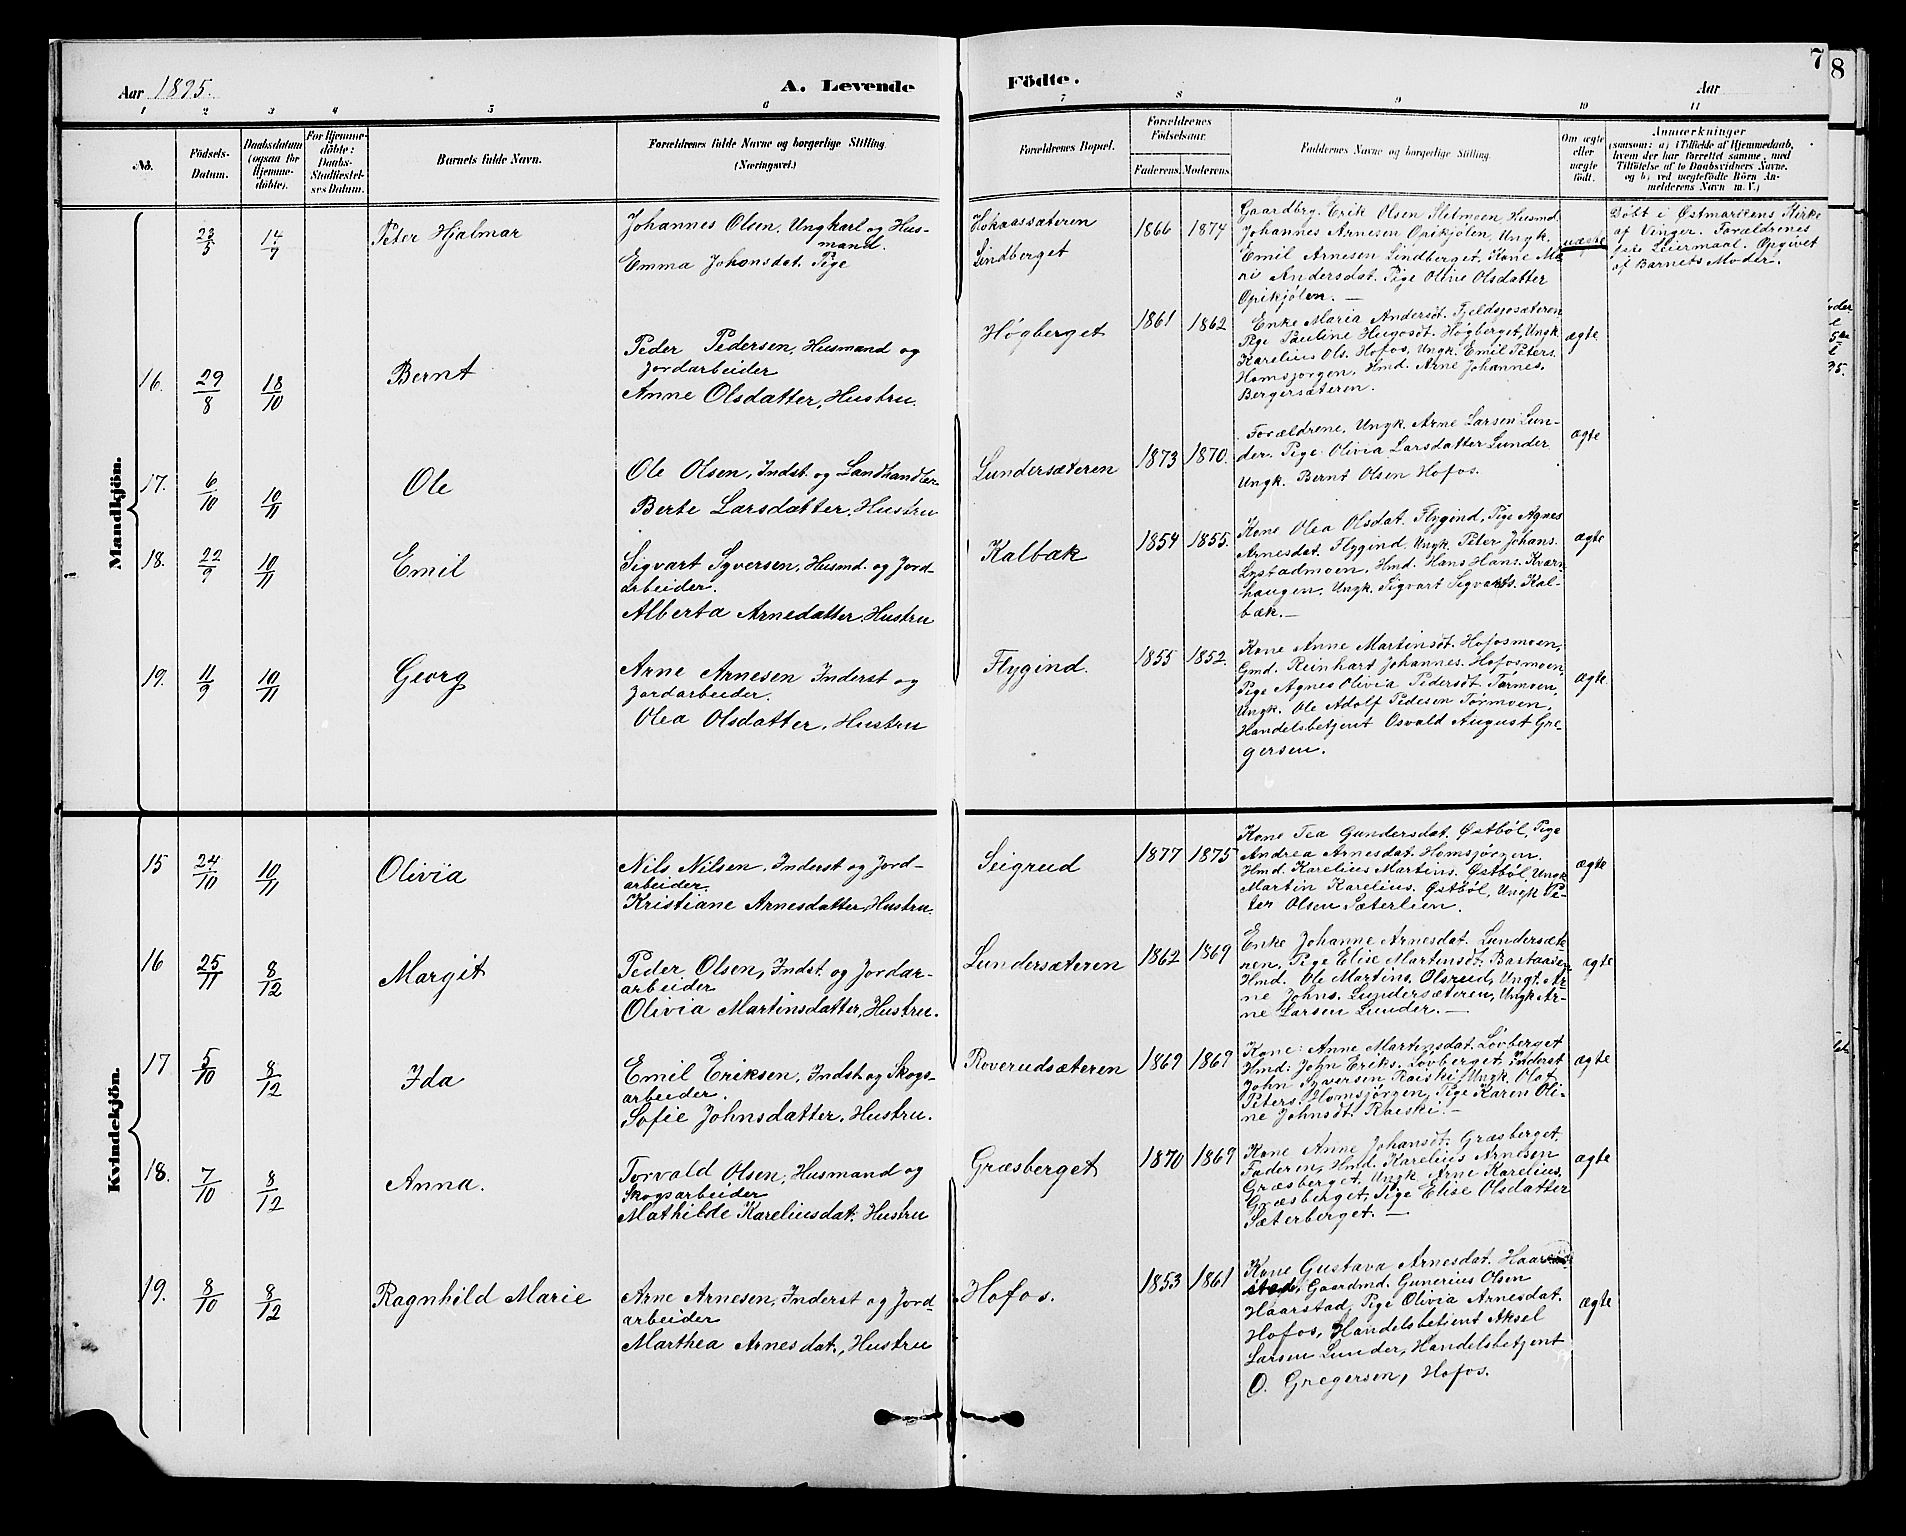 7
8
Aar 1895.
A. Levende Födte.
Aar
1 2 3 4 5 6 7 8 9 10 11
No.
Födsels-Datum.
Daabsdatum (ogsaa for Hjemme-döbte).
For Hjemme-döbte: Daabs-Stadfæstel-ses Datum.
Barnets fulde Navn.
Forældrenes fulde Navne og borgerlige Stilling
(Næringsvei.)
Forældrenes Bopæl.
Forældrenes Födselsaar.
Faderens. Moderens.
Faddernes Navne og borgerlige Stilling.
Om ægte eller uægte födt.
Anmærkninger
(saasom: a) i Tilfælde af Hjemmedaab,
hvem der har forrettet samme, med
Tilföielse af to Daabsvidners Navne.
og b) ved uægtefödte Börn An-
melderens Navn m. V.)
Mandkjön.
23/5 14/7 Peter Hjalmar
Johannes Olsen. Ungkarl og Hus-
mand.
Emma Johansdat. Pige
Hokaassæteren
Lindberget
1866 1874
Gaardbrg. Erik Olsen Sletmoen, Husmd.
Johannes Arnesen Opikjølen, Ungk.
Emil Arnesen Lindberget. Kone Ma-
ri Andersdat. Pige Oline Olsdatter
Opikjølen. —
uægte
Døbt i Østmarkens Kirke
af Vinger. Forældrenes
1ste Leiermaal. Opgivet
af Barnets Moder.
16. 29/8 18/10 Bernt
Peder Pedersen, Husmand og
Jordarbeider
Anne Olsdatter, Hustru.
Høgberget
1861 1862
Enke Maria Andersdt. Fjeldsjøsæteren
Pige Pauline Hugosdt. Høgberget, Ungk.
Karelius Ols. Hofos, Ungk. Emil Peters.
Homsjørgen. Hmd. Arne Johannes.
Bergersæteren.
ægte
17. 6/10 10/11 Ole
Ole Olsen, Indst. og Landhandler
Berte Larsdatter, Hustru
Lundersæteren
1873 1870.
Forældrene, Ungk. Arne Larsen Lun-
der. Pige Olivia Larsdatter Lunder
Ungk. Bernt Olsen Hofos.
ægte
18. 22/9 10/11 Emil
Sigvart Syversen, Husmd. og Jord-
arbeider.
Alberta Arnedatter, Hustru
Kalbæk
1854 1855.
Kone Olea Olsdat. Flygind, Pige Agnes
Arnesdat. Flygind. Ungk. Peter Johans.
Lystadmoen. Hmd. Hans Hans. Kværn-
haugen, Ungk. Sigvart Sigvarts. Kal-
bæk. —
ægte
19. 11/9 10/11 Georg
Arne Arnesen Inderst og
Jordarbeider.
Olea Olsdatter, Hustru
Flygind.
1855 1852.
Kone Anne Martinsdt. Hofosmoen,
Gmd. Reinhart Johannes. Hofosmoen,
Pige Agnes Olivia Pedersdt. Tørmoen,
Ungk. Ole Adolf Pedesen Tørmoen,
Handelsbetjent Osvald August Gre-
gersen.
ægte
Kvindekjön.
15 24/10 10/11 Olivia
Nils Nilsen, Inderst og Jord-
arbeider
Kristiane Arnesdatter, Hustru.
Seigrud
1877 1875
Kone Tea Gundersdat. Østbøl, Pige
Andrea Arnesdat. Homsjørgen.
Hmd. Karelius Martins. Østbøl Ungk
Martin Karelius. Østbøl, Ungk Pe-
ter Olsen Sæterlien.
ægte
16 25/11 8/12 Margit
Peder Olsen, Indst. og Jordar-
arbeider
Olivia Martinsdatter, Hustru.
Lundersæteren
1862 1869
Enke Johanne Arnesdat. Lundersæte-
nen, Pige Elise Martinsdt. Bastaasen
Hmd. Ole Martins. Olsrud, Ungt. Ar-
ne Johns. Lundersæteren, Ungk Ar-
ne Larsen Lunder. —
ægte
17 5/10 8/12 Ida
Emil Eriksen, Indst. og Skogs-
arbeider.
Sofie Johnsdatter, Hustru.
Roverudsæteren
1869 1869
Kone: Anne Martinsdat. Løvberget
Hmd: John Eriks. Løvberget. Inderst
John Syversen Raiski, Ungk. Olaf
Peters. Homsjørgen, Pige Karen Oli-
ne Johnsdt. Raiski. —
ægte
18. 7/10 8/12 Anna.
Torvald Olsen, Husmand og
Skogsarbeider
Mathilde Kareliusdat. Hustru
Græsberget
1870 1869
Kone Anne Johansdt. Græsberget,
Faderen, Hmd. Karelius Arnesen
Græsberget. Ungk Arne Karelius.
Græsberget, Pige Elise Olsdatter
Sæterberget. —
ægte
19. 8/10 8/12 Ragnhild Marie
Arne Arnesen, Inderst og Jord-
arbeider
Marthea Arnesdat., Hustru
Hofos.
1853 1861
Kone Gustava Arnesdat. Haar-
stad, Gaardmd. Gunerius Olsen
Haarstad, Pige Olivia Arnesdat.
Hofos, Handelsbetient Aksel
Larsen Lunder, Handelsbetjent
O. Gregersen, Hofos.
ægte